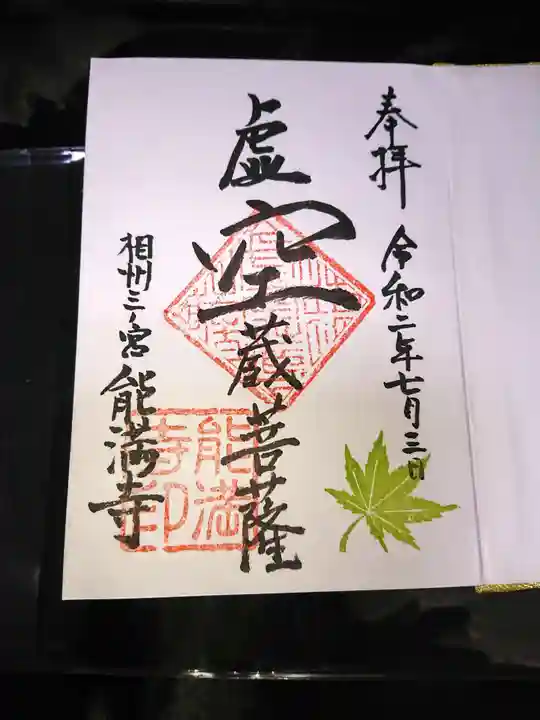 奉拝 令和二年七月三日
虚空蔵菩薩
相州三ノ宮 能満寺
能満寺印